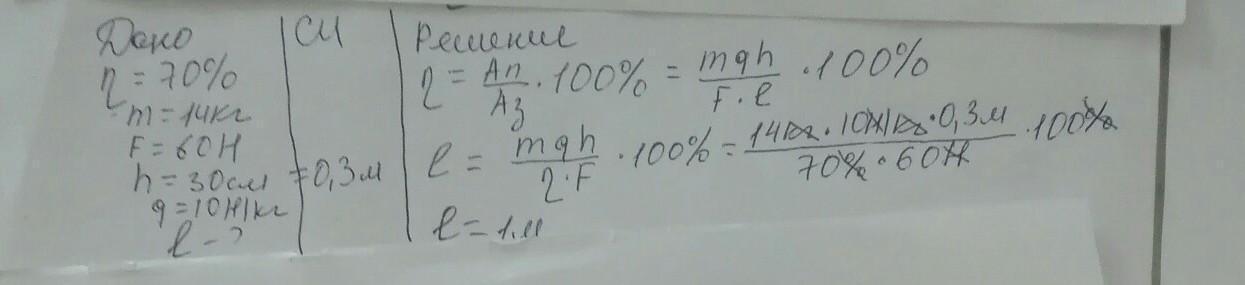 Дано
η = 70%
m = 14кг
F = 60Н
h = 30см
g = 10Н/кг
l - ?
СИ
= 0,3м
Решение
η = Aп/Aз · 100% = mgh/F·l · 100%
l = mgh/η·F · 100% = 14кг · 10Н/кг · 0,3м/70% · 60Н · 100%
l = 1м